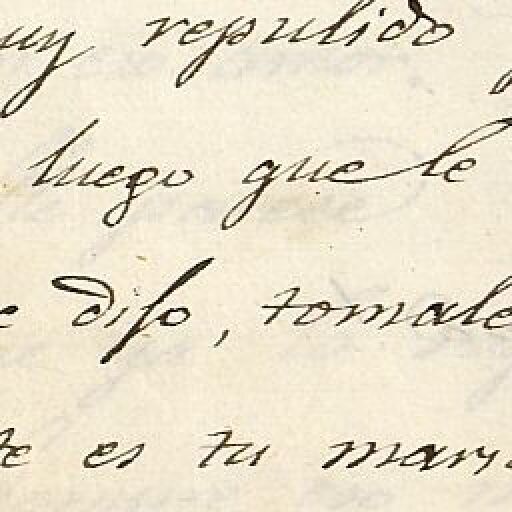 uy repulido
luego que le
e dijo, tomale
te es tu mari